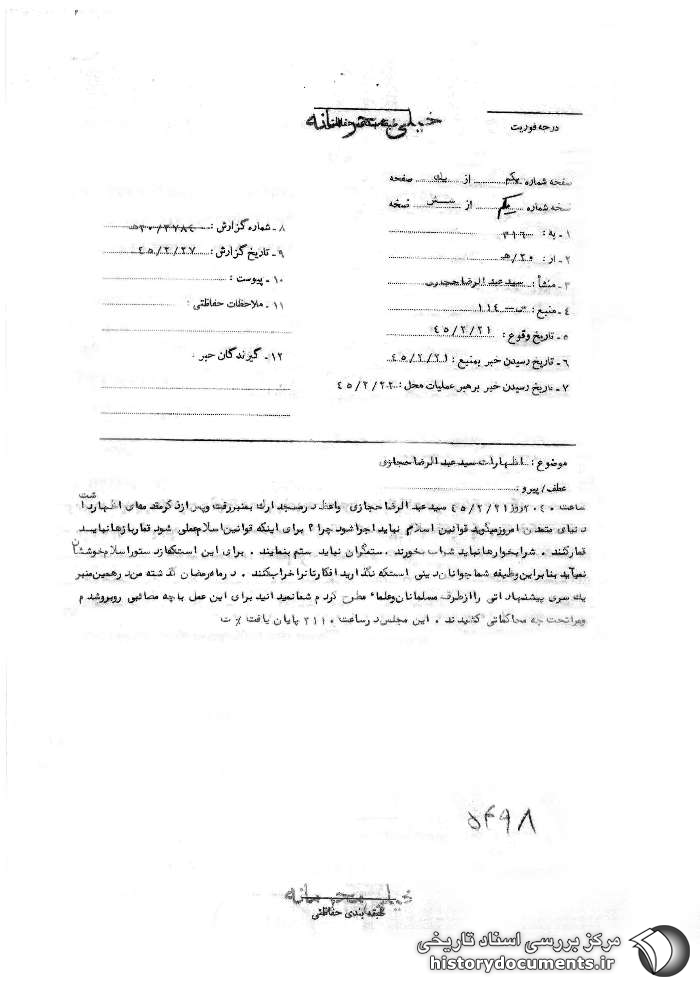 ۲
خیلی محرمانه
درجه فوریت
صفحه شماره یکم از یک صفحه
نسخه شماره یکم از شش نسخه
۱ـ به : ۳۱۶
۲ـ از : ۲۰/ه
۳ـ منشأ : سید عبدالرضا حجازی
۴ـ منبع : س ـ ۱۱۴
۵ـ تاریخ وقوع : ۴۵/۲/۲۱
۶ـ تاریخ رسیدن خبر بمنبع : ۴۵/۲/۲۱
۷ـ تاریخ رسیدن خبر برهبر عملیات محل : ۴۵/۲/۲۲
۸ـ شماره گزارش :
۹ـ تاریخ گزارش : ۴۵/۲/۲۷
۱۰ـ پیوست :
۱۱ـ ملاحظات حفاظتی :
۱۲ـ گیرندگان خبر .
موضوع : اظهارات سید عبدالرضا حجازی
عطف/پیرو :
ساعت ۲۰۴۰ روز ۴۵/۲/۲۱ سید عبدالرضا حجازی واعظ در مسجد ارک بمنبر رفت و پس از ذکر مقدمه‌ای اظهار داشت
دنیای متمدن امروز میگوید قوانین اسلام نباید اجرا شود چرا ؟ برای اینکه قوانین اسلام عملی شود قماربازها نباید
قمار کنند . شرابخوارها نباید شراب بخورند . ستمگران نباید ستم بنمایند . برای این است که از دستور اسلام خوششان
نمیآید بنابراین وظیفه شما جوانان دینی است که نگذارید افکارتان را خراب کنند . در ماه رمضان گذشته من در همین منبر
یک سری پیشنهاداتی را از طرف مسلمانان و علماء مطرح کردم شما نمیدانید برای این عمل با چه مصائبی روبرو شدم
ومرا تحت چه محاکماتی کشیدند . این مجلس در ساعت ۲۱۱۰ پایان یافت ٪ ت
۵۴۹۸
خیلی محرمانه
طبقه بندی حفاظتی
مرکز بررسی اسناد تاریخی
historydocuments.ir